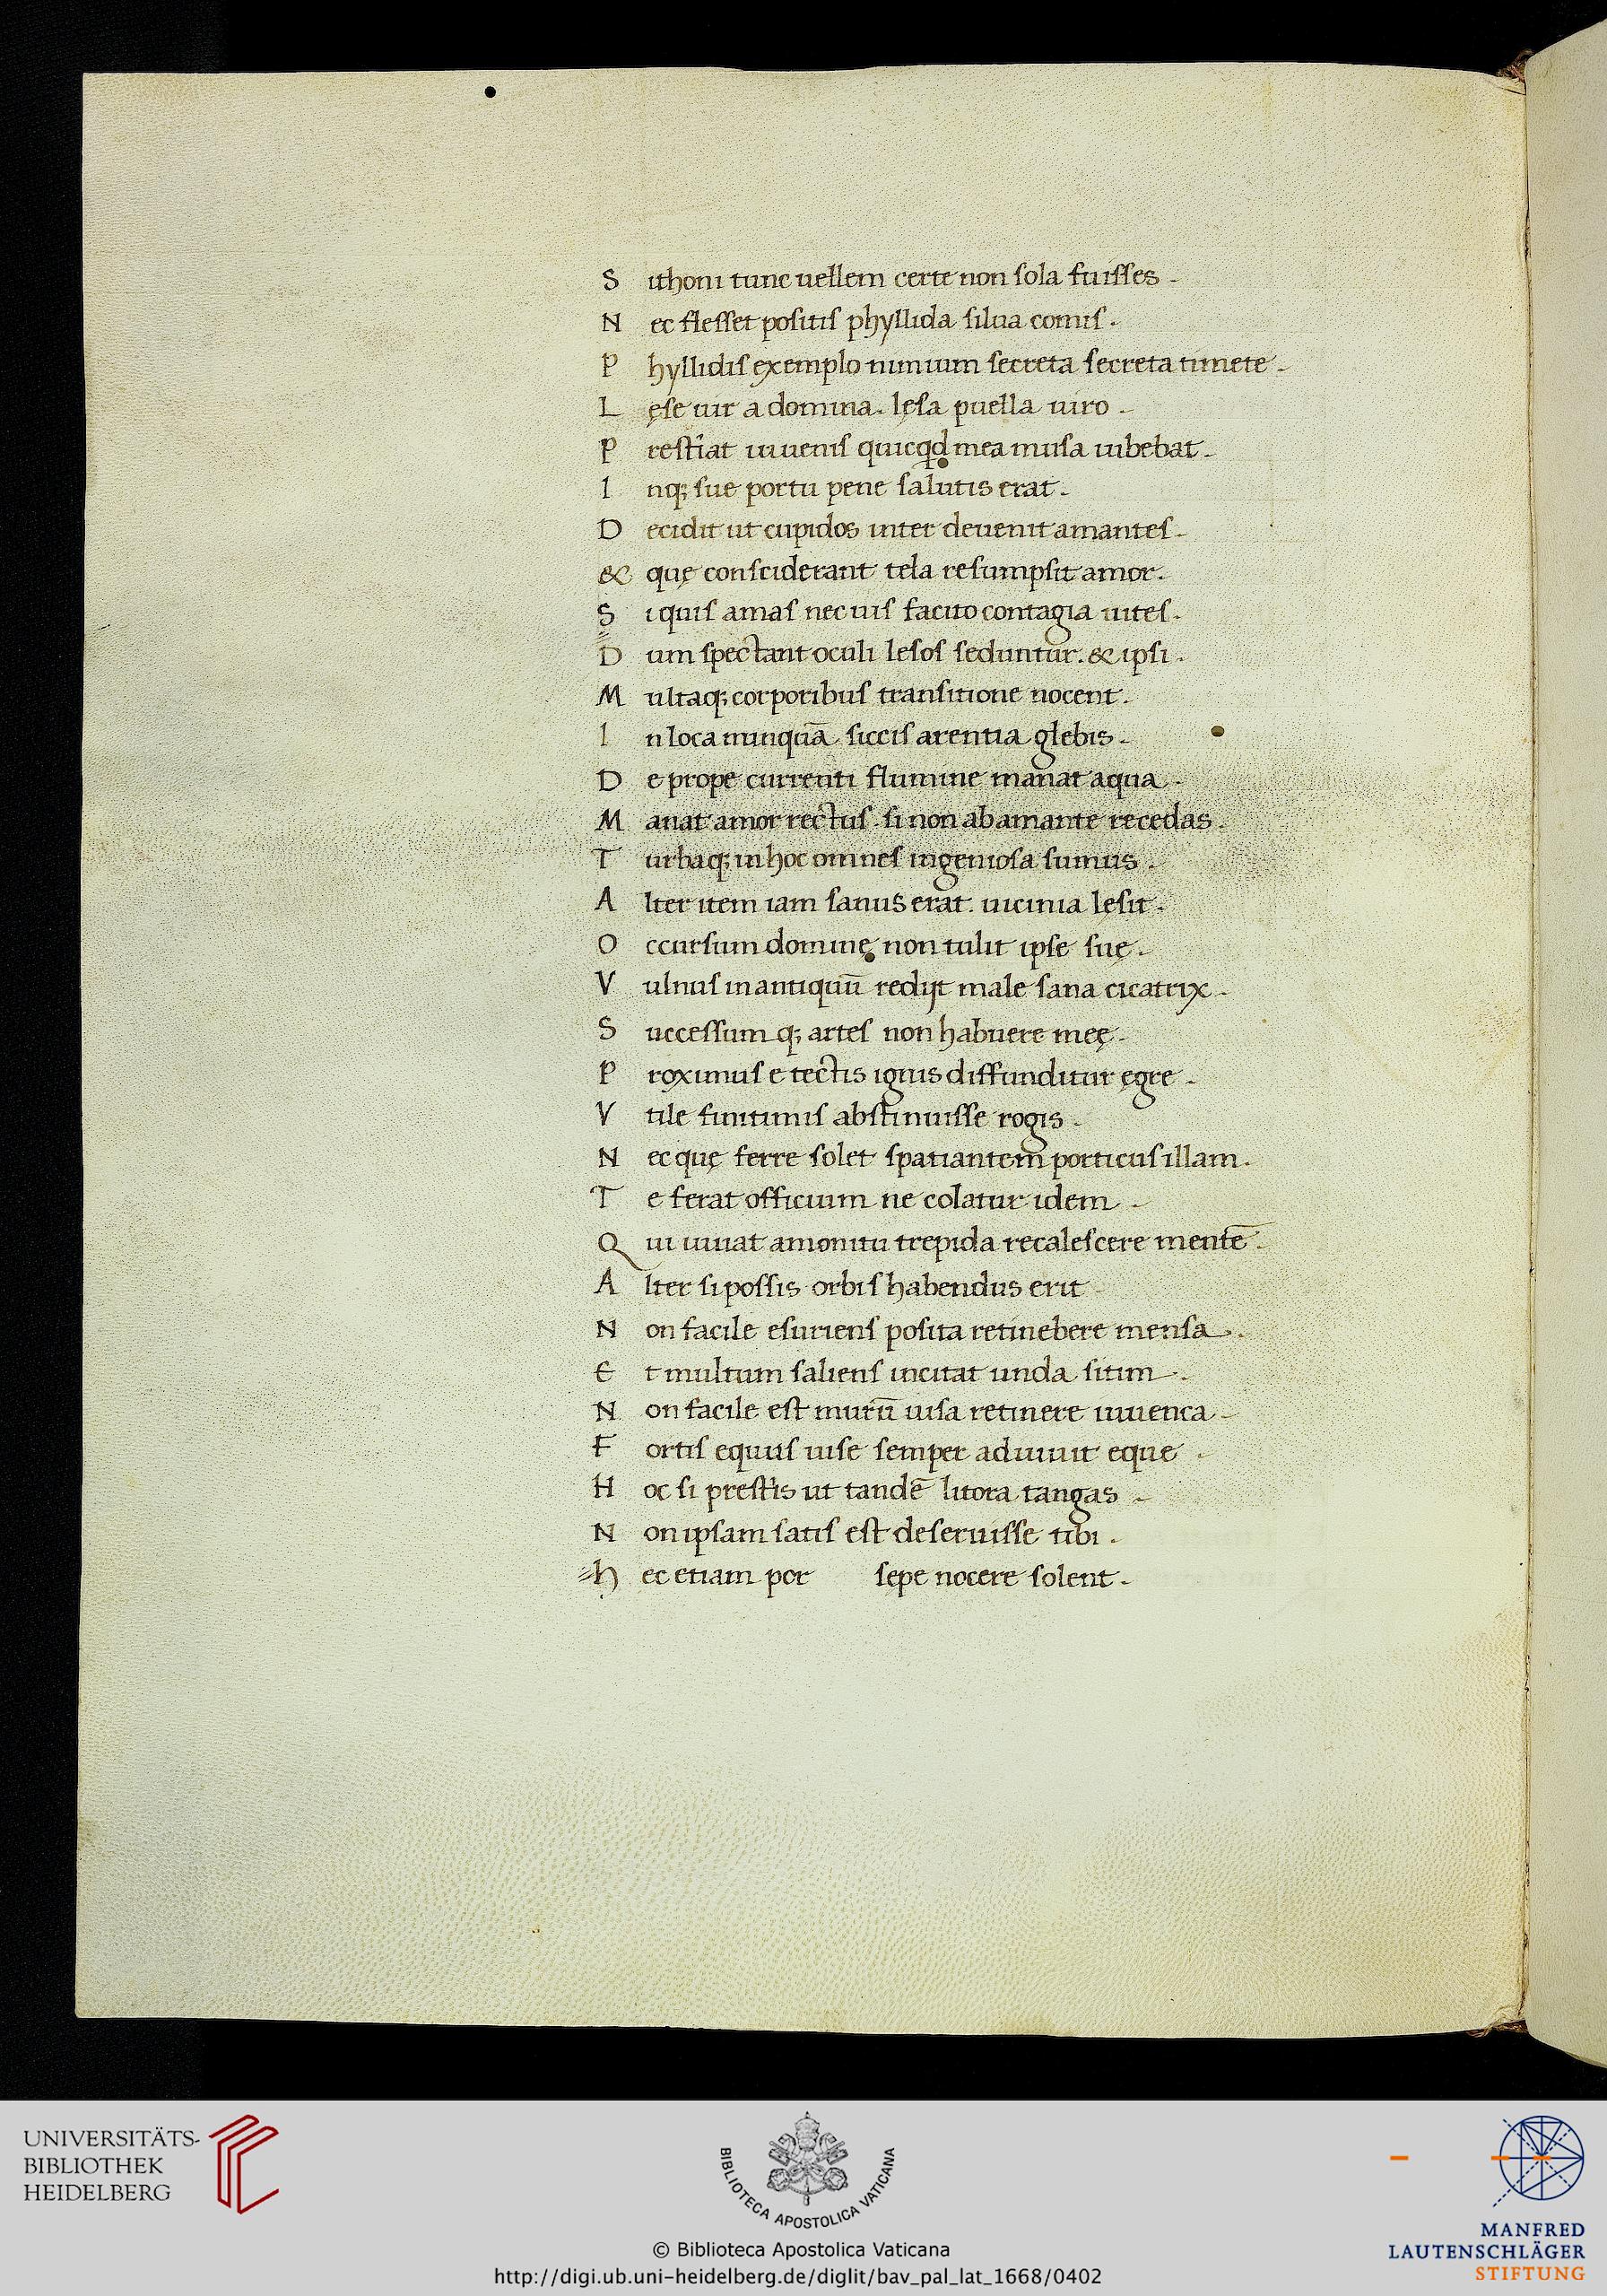 S ithoni tunc uellem certe non sola fuisses.
N ec flesset positis phyllida silua comis.
P hyllidis exemplo nimium secreta secreta timete.
L ęse uir a domina. lęsa puella uiro.
P restiat iuuenis quicqd mea musa iubebat.
I nq; sue portu pene salutis erat.
D ecidit ut cupidos inter deuenit amantes.
& quę consciderant tela resumpsit amor.
S iquis amas nec uis facito contagia uites.
D um spectant oculi lesos seduntur. & ipsi.
M ultaq; corporibus transitione nocent.
I n loca nunquā siccis arentia glebis.
D e prope currenti flumine manat aqua.
M anat amor rectus. si non ab amante recedas.
T urbaq; in hoc omnes ingeniosa sumus.
A lter item iam sanus erat. uicinia lesit.
O ccursum dominę non tulit ipse suę.
V ulnus in antiquū redijt male sana cicatrix.
S uccessum q; artes non habuere meę.
P roximus e tectis ignis diffunditur ęgre.
V tile finitimis abstinuisse rogis.
N ec quę ferre solet spatiantem porticus illam.
T e ferat officium ne colatur idem.
Q ui iuuat amonitu trepida recalescere mentē.
A lter si possis orbis habendus erit
N on facile esuriens posita retinebere mensa.
E t multum saliens incitat unda sitim.
N on facile est murū uisa retinere iuuenca.
F ortis equus uise semper adiuuit eque.
H oc si prestis ut tandē litora tangas.
N on ipsam satis est deseruisse tibi.
h ec etiam por sepe nocere solent.
UNIVERSITÄTS-
BIBLIOTHEK
HEIDELBERG
BIBLIOTECA APOSTOLICA VATICANA
© Biblioteca Apostolica Vaticana
http://digi.ub.uni-heidelberg.de/diglit/bav_pal_lat_1668/0402
MANFRED
LAUTENSCHLÄGER
STIFTUNG